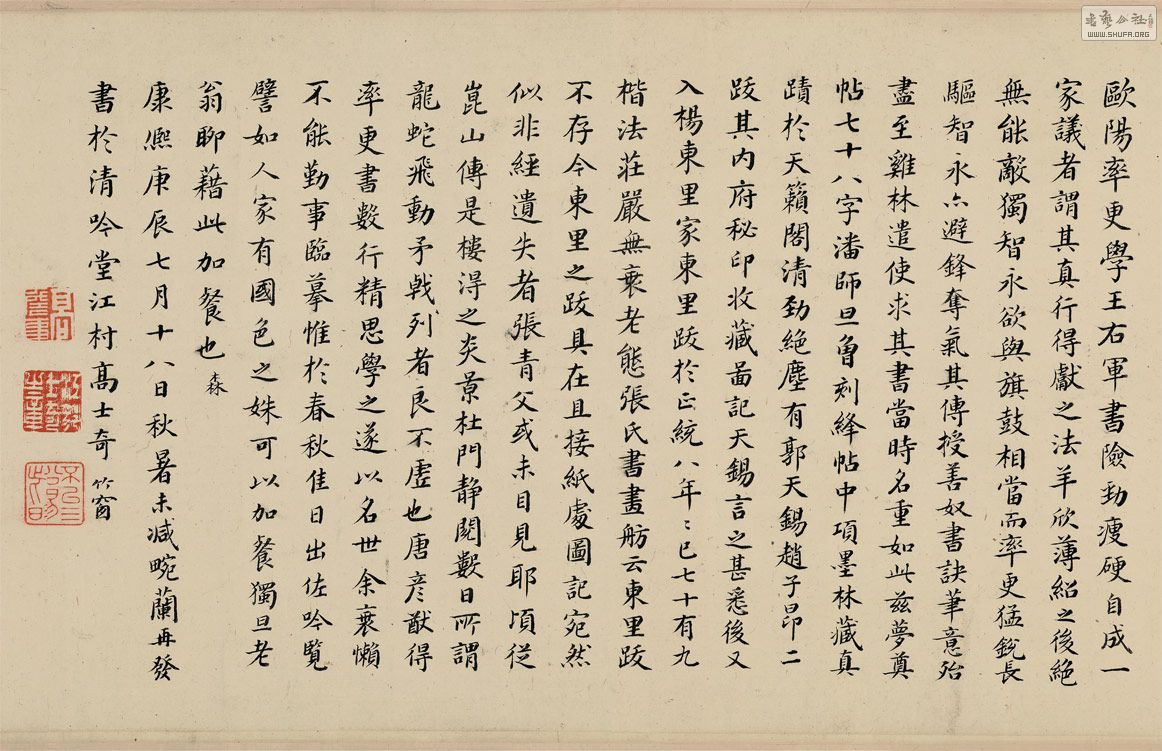 歐陽率更學王右軍書險勁瘦硬自成一
家議者謂其真行得獻之法羊欣薄紹之後絕
無能敵獨智永欲與旗鼓相當而率更猛銳長
驅智永亦避鋒奪氣其傳授善奴書訣筆意殆
盡至雞林遣使求其書當時名重如此茲夢奠
帖七十八字潘師旦魯刻絳帖中項墨林藏真
蹟於天籟閣清勁絕塵有郭天錫趙子昂二
跋其內府秘印收藏畐記天錫言之甚悉後又
入楊東里家東里跋於正統八年〻已七十有九
楷法莊嚴無衰老態張氏書畫舫云東里跋
不存今東里之跋具在且接紙處圖記宛然
似非經遺失者張青父或未目見耶頃從
崑山傳是樓得之炎景杜門靜閱數日所謂
龍蛇飛動矛戟列者良不虛也唐彥猷得
率更書數行精思學之遂以名世余衰懶
不能勤事臨摹惟於春秋佳日出佐吟覽
譬如人家有國色之姝可以加餐獨旦老
翁聊藉此加餐也 森
康熙庚辰七月十八日秋暑未減畹蘭再發
書於清吟堂江村高士奇 竹窗
書藝公社
WWW.SHUFA.ORG